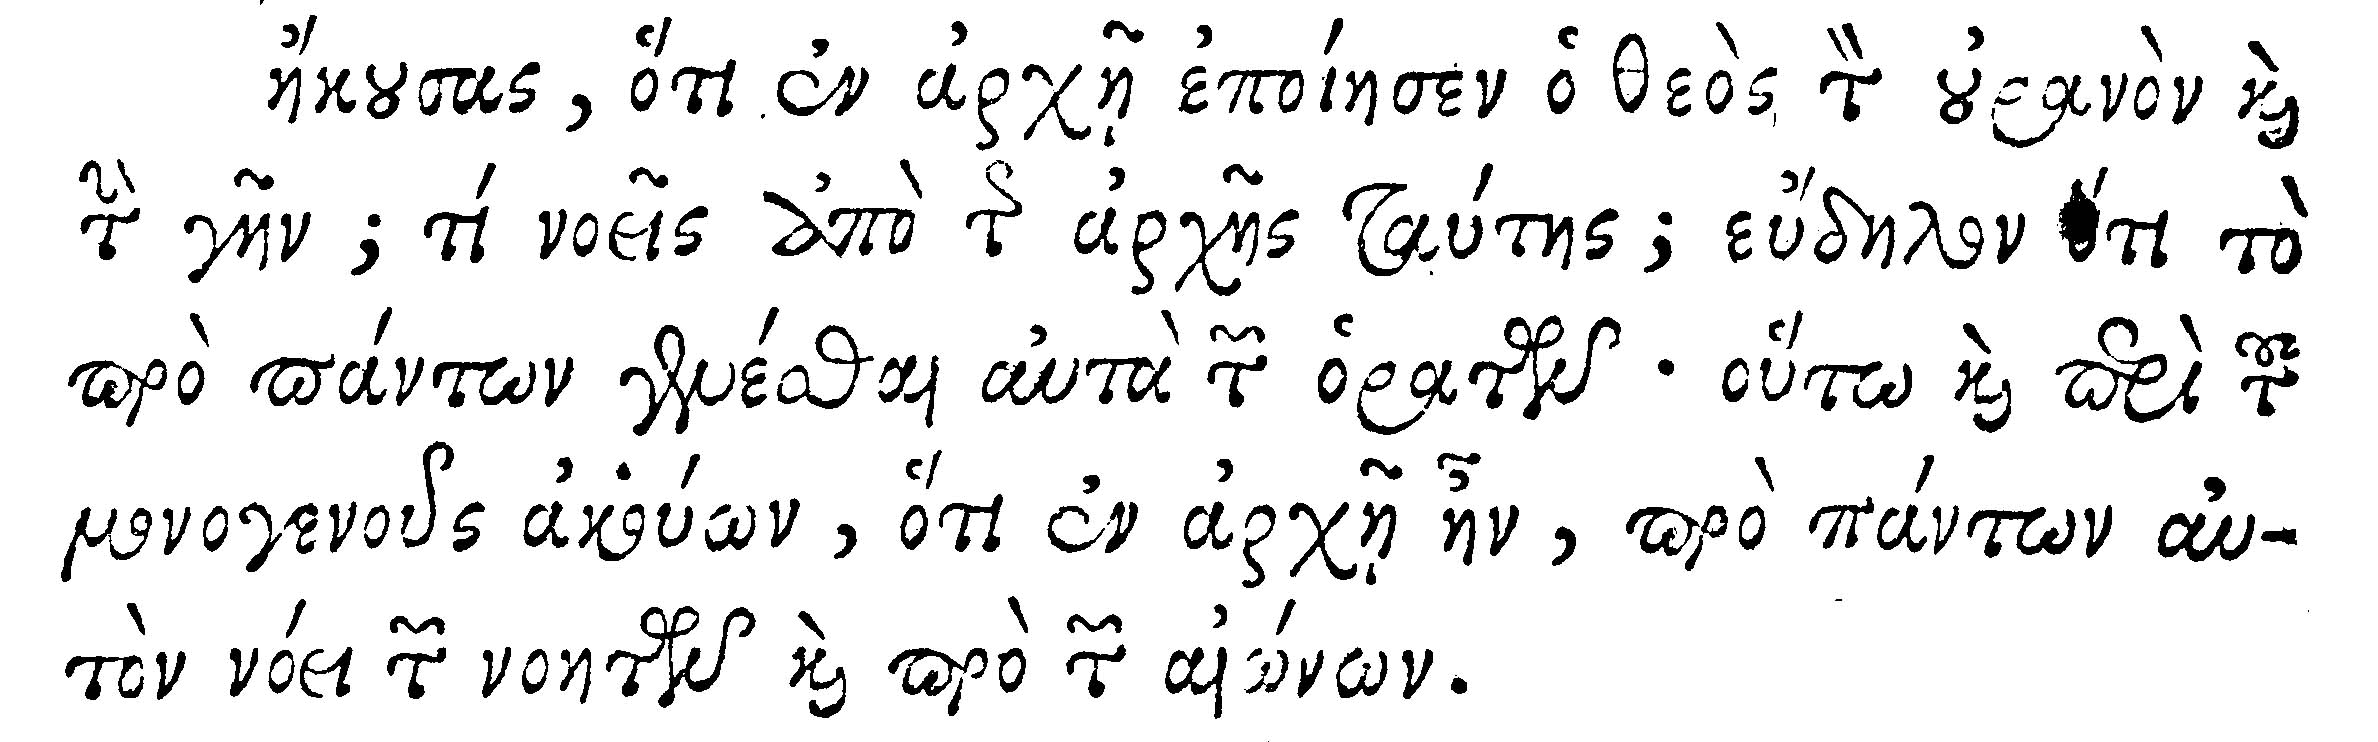 ἤκουσας, ὅτι ἐν ἀρχῇ ἐποίησεν ὁ θεὸς τὸν οὐρανὸν καὶ
τὴν γῆν; τί νοεῖς ἀπὸ τῆς ἀρχῆς ταύτης; εὔδηλον ὅτι τὸ
πρὸ πάντων γενέσθαι αὐτὰ τῶν ὁρατῶν· οὕτω καὶ περὶ τοῦ
μονογενοῦς ἀκούων, ὅτι ἐν ἀρχῇ ἦν, πρὸ πάντων αὐ-
τὸν νόει τῶν νοητῶν καὶ πρὸ τῶν αἰώνων.